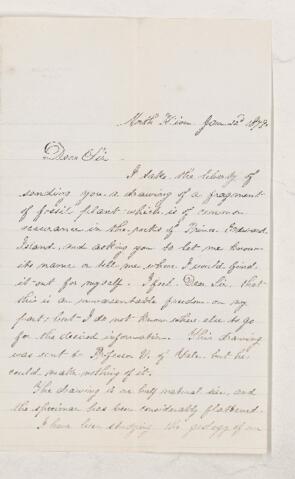 North River Jan 22d 1872
Dear Sir
I take the liberty of
sending you a drawing of a fragment
of fossil plant which is of common
occurance in the rocks of Prince Edward
Island, and asking you to let me know
its name or tell me where I could find
it out for myself. I feel, Dear Sir, that
this is an unwarrantable freedom on my
part; but I do not know where else to go
for the desired information. This drawing
was sent to Professor V. of Yale, but he
could make nothing of it.
The drawing is one half natural size, and
the specimen has been considerably flattened.
I have been studying the geology of our